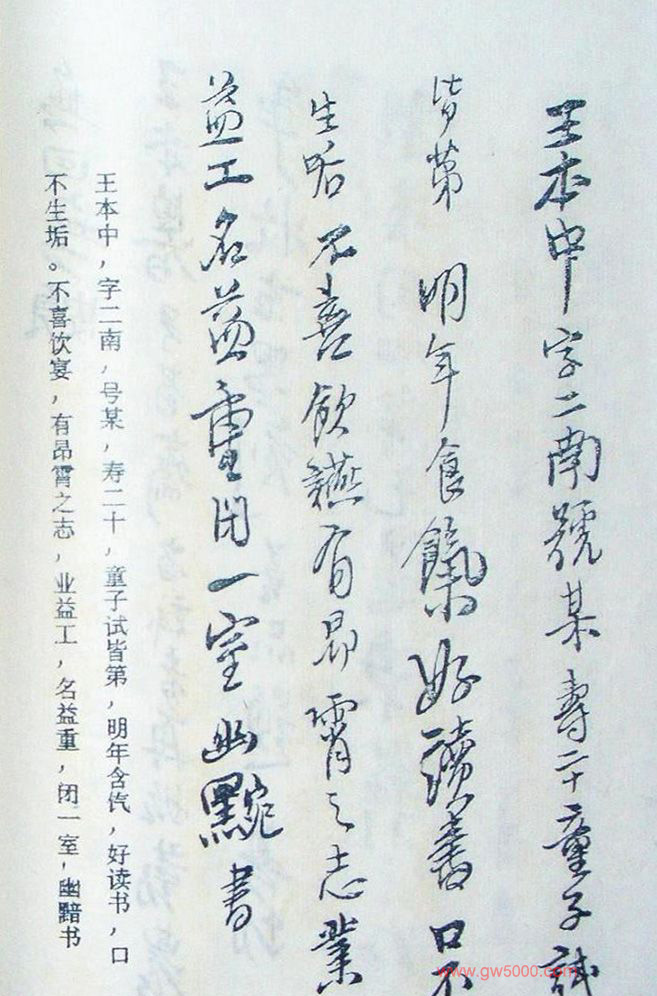 王本中字二南號某壽二十童子試
皆第 明年食餼好讀書口不
生垢不喜飲讌有昂霄之志業
益工名益重閉一室幽書
王本中，字二南，号某，寿二十，童子试皆第，明年含饩，好读书，口
不生垢。不喜饮宴，有昂霄之志，业益工，名益重，闭一室，幽黯书
www.gw5000.com